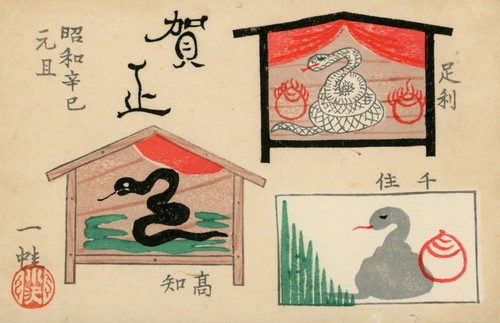 賀正
昭和辛巳
元旦
足利
千住
高知
一